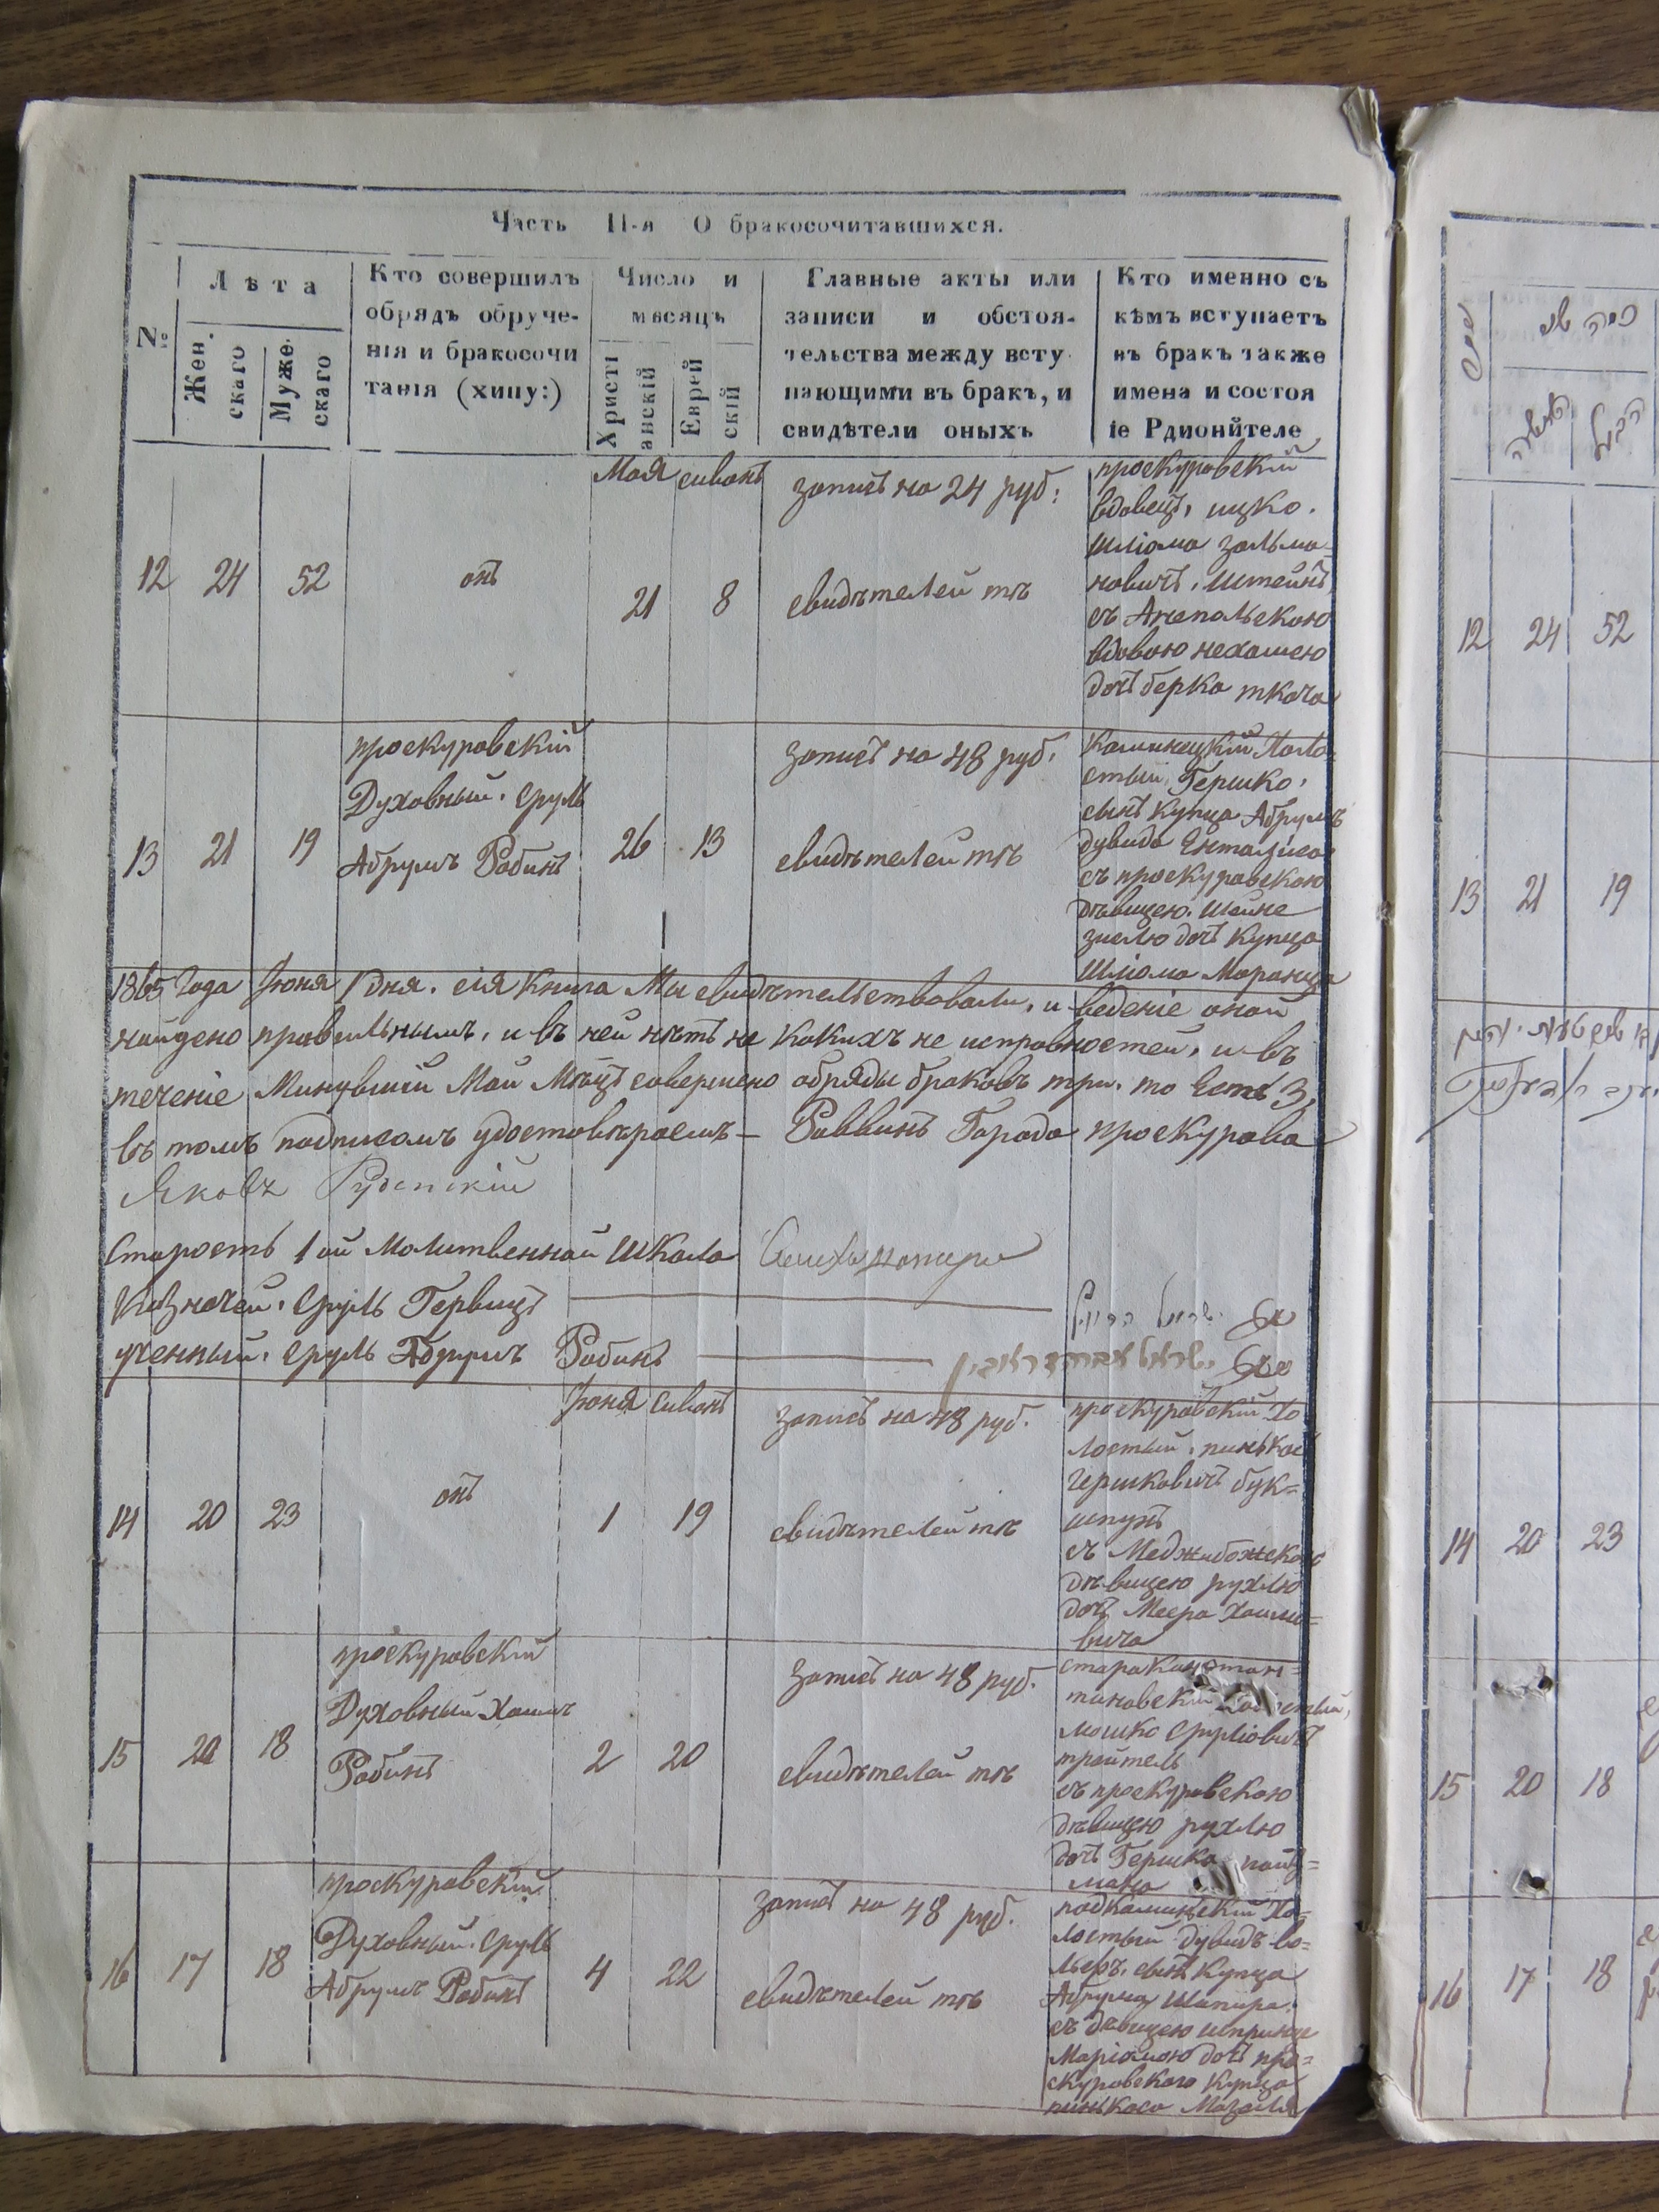 Часть II-я О бракосочитавшихся.
№
Лѣта
Жен.
скаго
Муже
скаго
Кто совершилъ
обрядъ обруче-
нія и бракосочи
танія (хипу:)
Число и
мѣсяцъ
Христі
анскій
Еврей
скій
Главные акты или
записи и обстоя-
тельства между всту
пающими въ бракъ, и
свидѣтели оныхъ
Кто именно съ
кѣмъ вступаетъ
въ бракъ также
имена и состоя
іе Рдионйтеле
12 24 52
онъ
Мая сиванъ
21 8
запись на 24 руб:
свидѣтелей тѣ
проскуровскій
вдовецъ, ицко.
Шліома зальма=
новичъ, Штейнъ,
съ Анепольскою
вдовою нехамею
дочь берка ткача
13 21 19
проскуровскій
Духовный. Сруль
Абрумъ Рабинъ
26 13
запись на 48 руб.
свидѣтелей тѣ
Каминецкій Холо
стый Гершко,
сынъ купца Абрумъ
дувида
съ проскуровскою
дѣвицею. Шейне
зислю дочь Купца
Шліома Маранца
1865 Года Іюня 1 дня. сія Книга Мы свидѣтельствовали, и веденіе оной
найдено правельнымъ, и въ ней нѣтъ не какихъ не исправностей, и въ
теченіе Минувшій Май Мѣсяцъ совершено обряды браковъ три. то Есть 3,
въ томъ подписомъ удостовѣраемъ — Раввинъ Города проскурова
Яковъ
Старость 1 ой Молитвенной Школа
Казначей. Сруль Гервицъ
ученный. Сруль Абрумъ Рабинъ
ישראל
14 20 23
онъ
Іюня Сиванъ
1 19
запись на 48 руб.
свидѣтелей тѣ
проскуровскій Хо
лостый, пинькос
гершковичъ бук=
шпунъ
съ Меджибожскою
дѣвицею рухлю
дочь Меера Хаимо=
вича
15 20 18
проскуровскій
Духовный Хаимъ
Рабинъ
2 20
запись на 48 руб.
свидѣтелей тѣ
старо Констан=
тиновскій
мошко Срулiовичъ
тройтель
съ проскуровскою
дѣвицею рухлю
дочь Гершка
мана
16 17 18
проскуровскій
Духовный. Сруль
Абрумъ Рабинъ
4 22
запись на 48 руб.
свидѣтелей тѣ
подкаминьскій Хо=
лостый дувидъ во=
льеръ. сынъ Купца
Абрума Шапира.
съ дѣвицею шпринце
Маріамою дочь про=
скуровского Купца
пинькоса Мазаля
12 24 52
13 21 19
14 20 23
15 20 18
16 17 18